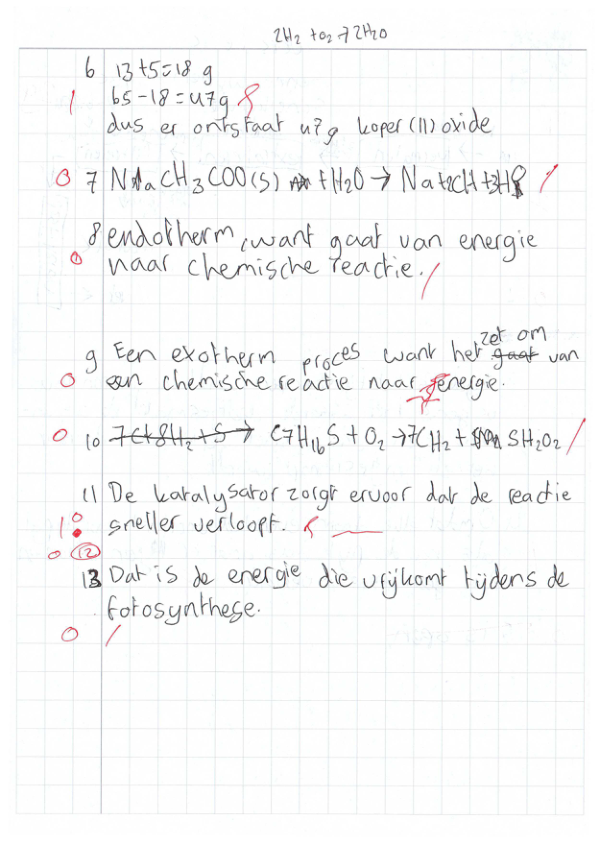 2H2 + O2 → 2H2O
6 13+5=18 g
1 65-18=47g
dus er ontstaat 47g koper (II) oxide
0 7 NaCH3COO(s) + H2O →
8 endotherm, want gaat van energie
0 naar chemische reactie.
zet om
9 Een exotherm proces want het gaat van
0 een chemische reactie naar energie.
0 10 7C+8H2+S → C7H16S + O2 → 7CH2 + SH2O2
11 De katalysator zorgt ervoor dat de reactie
1 0 sneller verloopt.
0 12
13 Dat is de energie die vrijkomt tijdens de
fotosynthese.
0